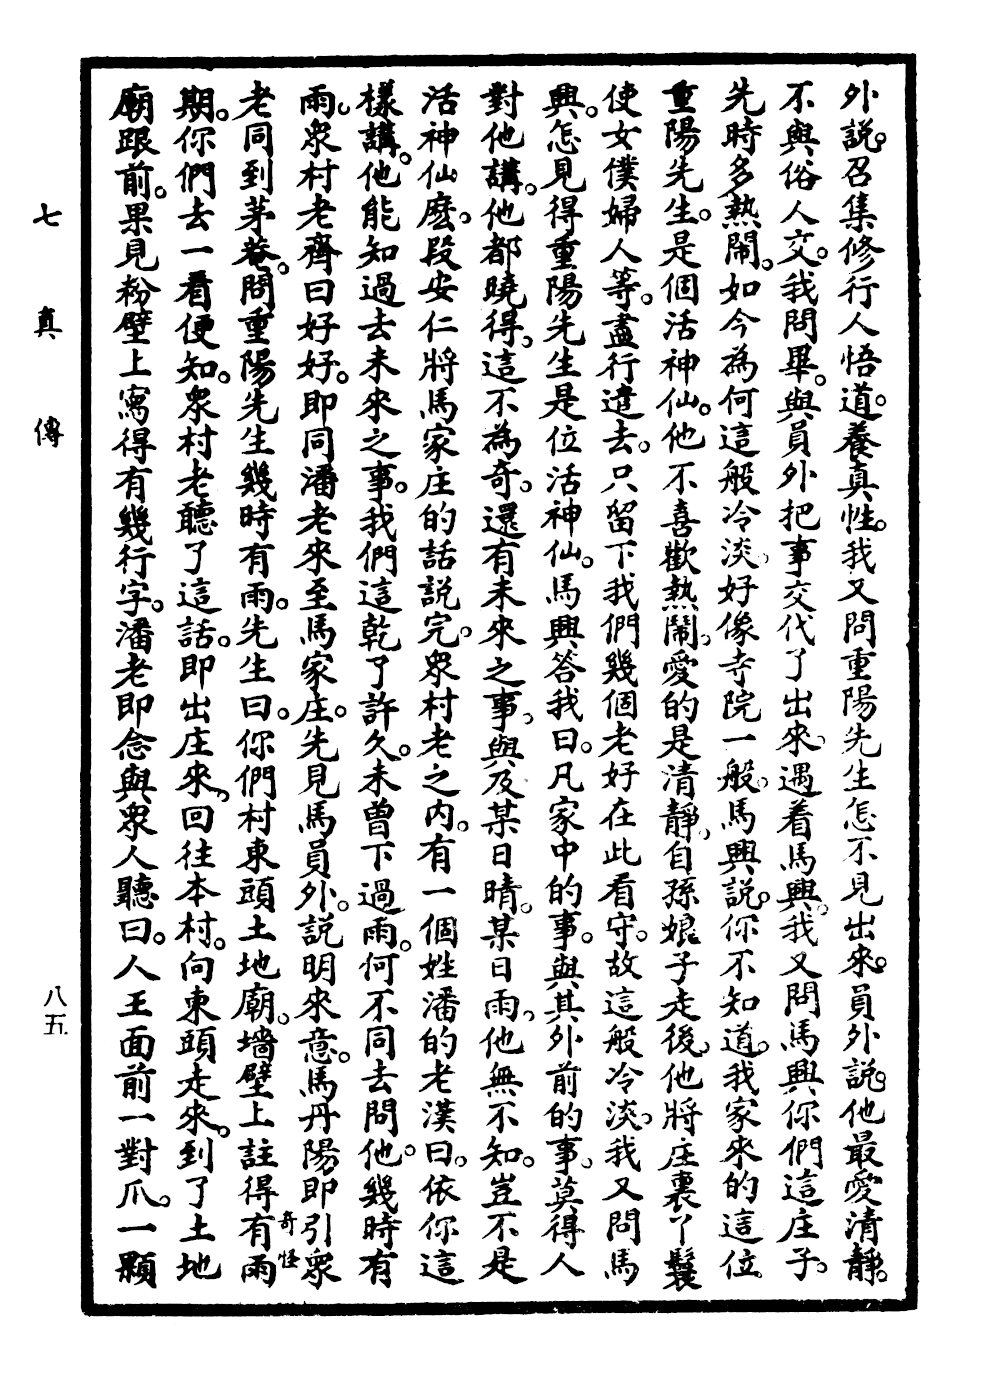 外說。召集修行人悟道。養真性。我又問重陽先生怎不見出來。員外說。他最愛清靜。
不與俗人交。我問畢。與員外把事交代了出來。遇着馬興。我又問馬興你們這庄子。
先時多熱鬧。如今為何這般冷淡。好像寺院一般。馬興說。你不知道。我家來的這位
重陽先生。是個活神仙。他不喜歡熱鬧。愛的是清靜。自孫娘子走後。他將庄裏丫鬟
使女僕婦人等。盡行遣去。只留下我們幾個老好在此看守。故這般冷淡。我又問馬
興。怎見得重陽先生是位活神仙。馬興答我曰。凡家中的事。與其外前的事。莫得人
對他講。他都曉得。這不為奇。還有未來之事。與及某日晴。某日雨。他無不知。豈不是
活神仙麽。段安仁將馬家庄的話說完。眾村老之內。有一個姓潘的老漢曰。依你這
樣講。他能知過去未來之事。我們這乾了許久。未曾下過雨。何不同去問他。幾時有
雨。眾村老齊曰好好。即同潘老來至馬家庄。先見馬員外。說明來意。馬丹陽即引眾
奇怪
老同到茅菴。問重陽先生幾時有雨。先生曰。你們村東頭土地廟。墻壁上註得有雨
期。你們去一看便知。眾村老聽了這話。即出庄來。回往本村。向東頭走來。到了土地
廟跟前。果見粉壁上寫得有幾行字。潘老即念與眾人聽曰。人王面前一對爪。一顆
七真傳
八五